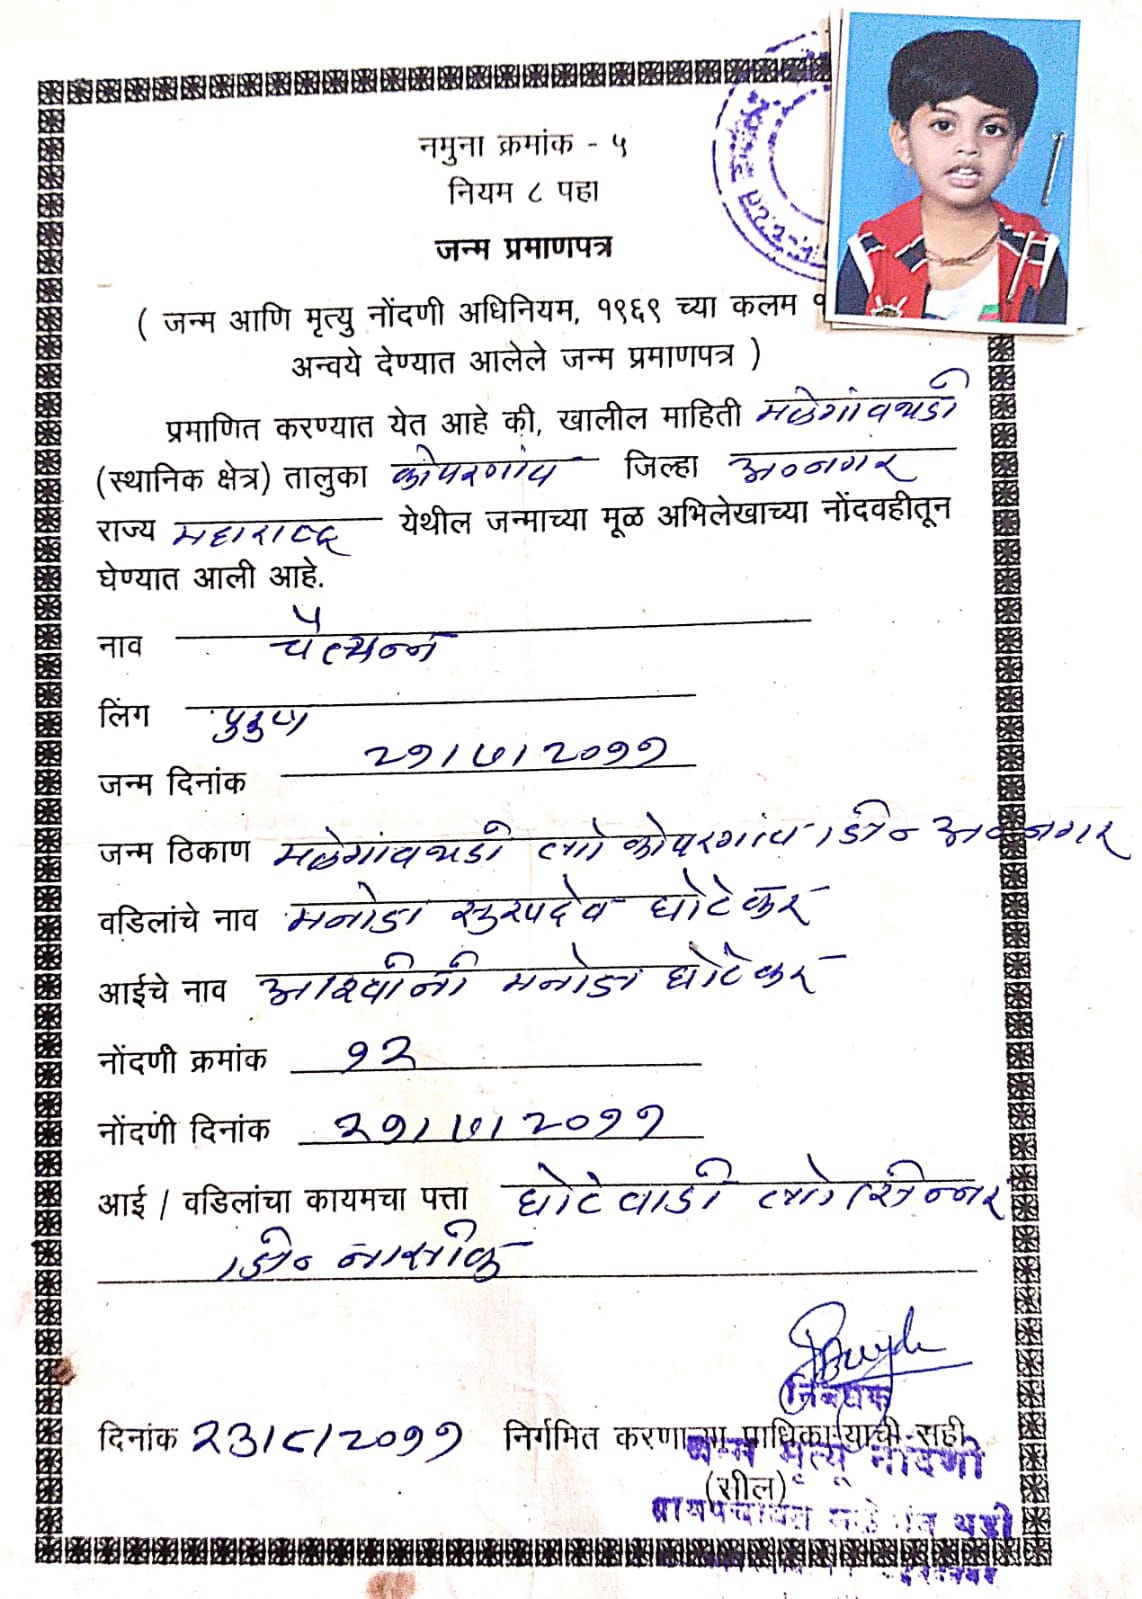 नमुना क्रमांक - ५
नियम ८ पहा
जन्म प्रमाणपत्र
( जन्म आणि मृत्यु नोंदणी अधिनियम, १९६९ च्या कलम
अन्वये देण्यात आलेले जन्म प्रमाणपत्र )
प्रमाणित करण्यात येत आहे की, खालील माहिती मळेगांवथडी
(स्थानिक क्षेत्र) तालुका कोपरगांव जिल्हा अ०नगर
राज्य महाराष्ट्र येथील जन्माच्या मूळ अभिलेखाच्या नोंदवहीतून
घेण्यात आली आहे.
नाव चैत्यन्न
लिंग पुरुष
जन्म दिनांक २१/७/२०११
जन्म ठिकाण मळेगांवथडी ता० कोपरगांव जि० अ०नगर
वडिलांचे नाव मनोज सुखदेव घोटेकर
आईचे नाव आश्वीनी मनोज घोटेकर
नोंदणी क्रमांक १२
नोंदणी दिनांक २१/७/२०११
आई / वडिलांचा कायमचा पत्ता घोटेवाडी ता० सिन्नर
जि० नासीक
निबंधक
दिनांक २३/८/२०११ निर्गमित करणाऱ्या प्राधिकाऱ्याची सही
जन्म मृत्यू नोंदणी
(सील)
ग्रामपंचायत मळेगांव थडी